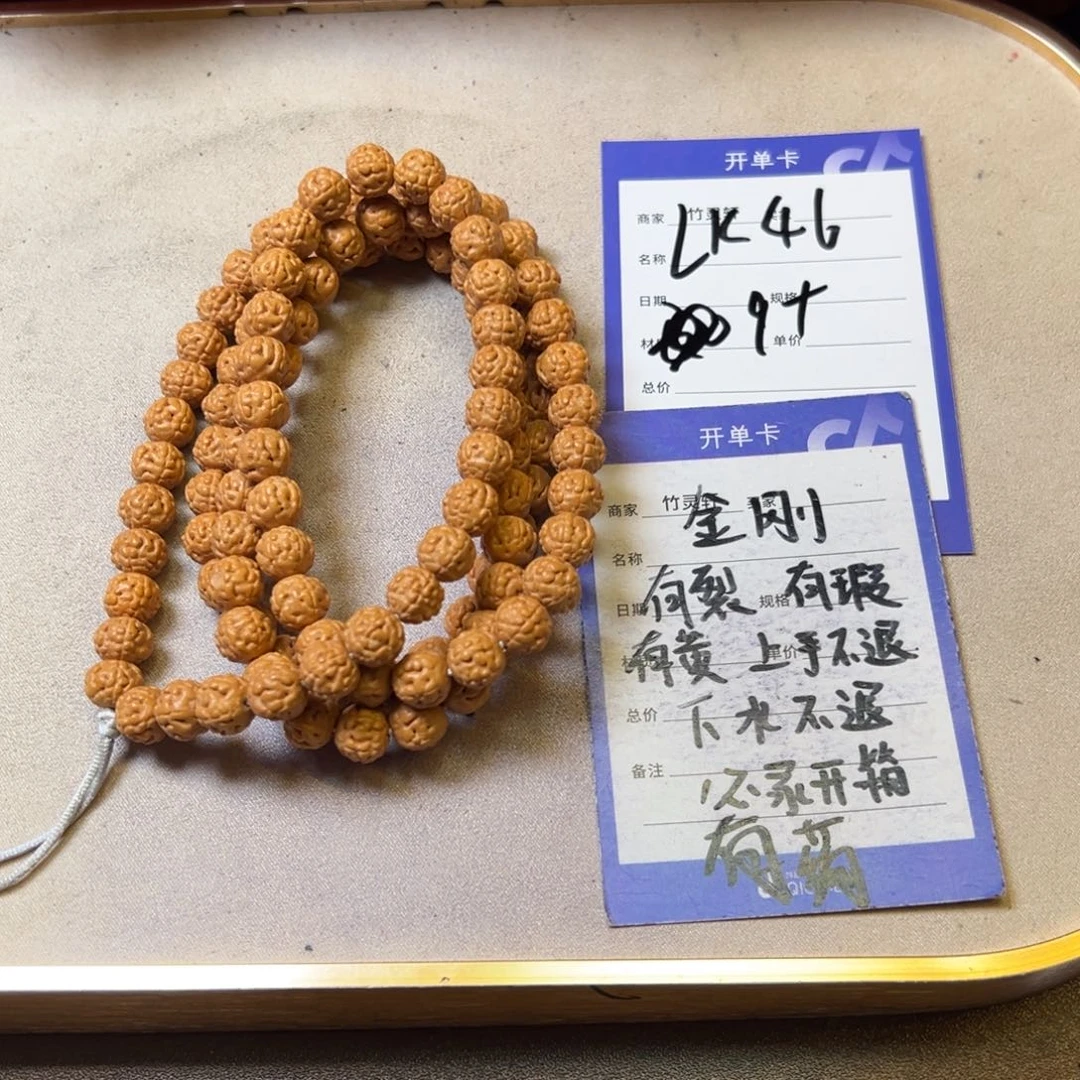 开单卡
商家 竹灵轩
LK46
名称
日期 规格
9+
材 单价
总价
开单卡
商家 竹灵轩
金刚
名称
有裂 有瑕
日期 规格
有黄 上手不退
单价
下水不退
总价
备注
必录开箱
有药